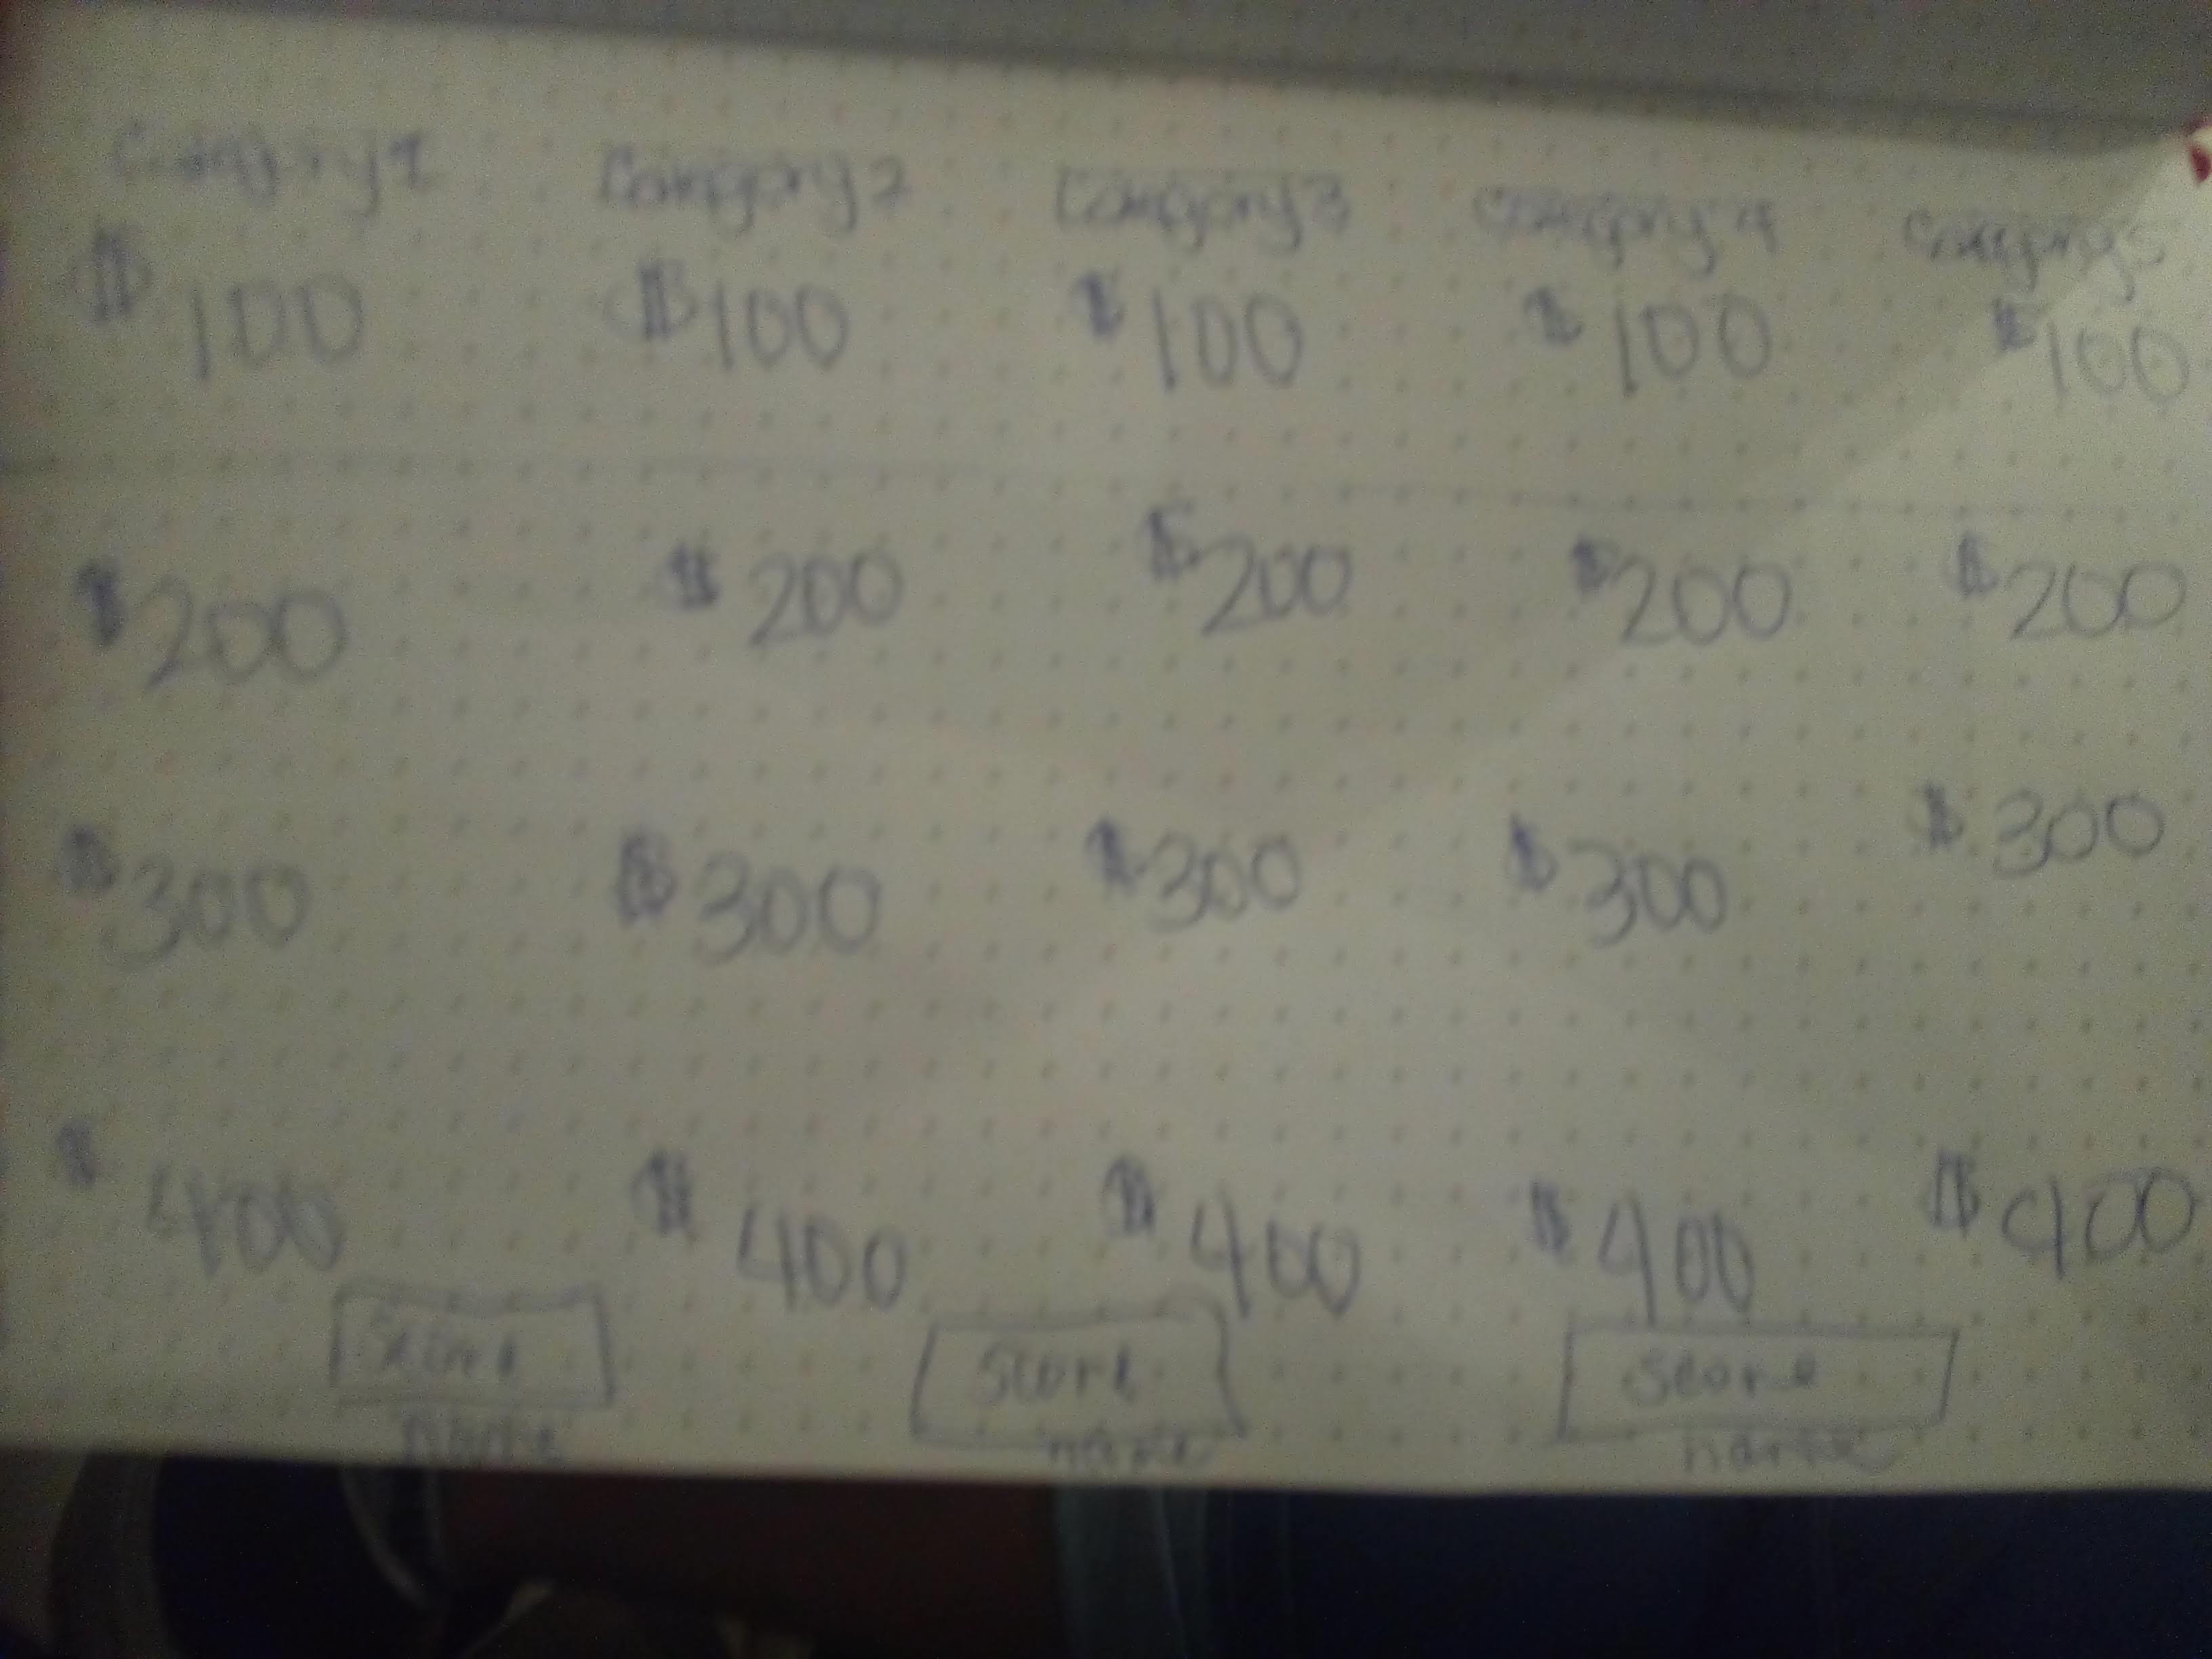 Category 1 Category 2 Category 3 Category 4 Category 5
$100 $100 $100 $100 $100
$200 $200 $200 $200 $200
$300 $300 $300 $300 $300
$400 $400 $400 $400 $400
Score Score Score
name name name